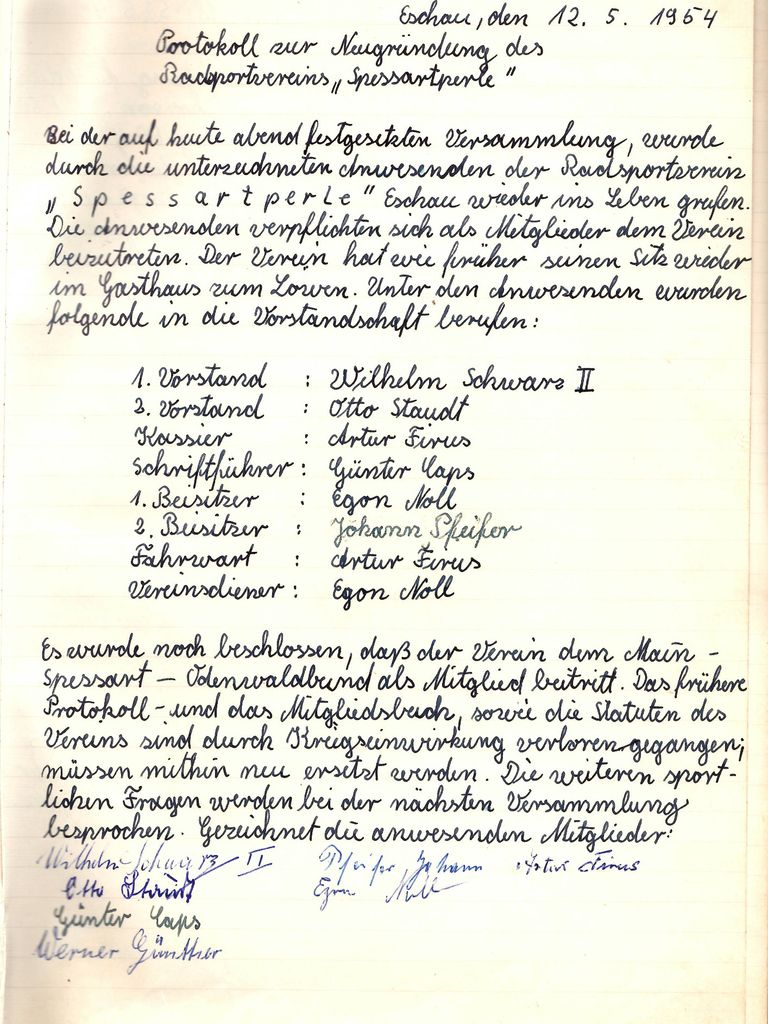 Eschau, den 12. 5. 1954
Protokoll zur Neugründung des
Radsportvereins „Spessartperle"
Bei der auf heute abend festgesetzten Versammlung, wurde
durch die unterzeichneten Anwesenden der Radsportverein
„Spessartperle" Eschau wieder ins Leben grufen.
Die Anwesenden verpflichten sich als Mitglieder dem Verein
beizutreten. Der Verein hat wie früher seinen Sitz wieder
im Gasthaus zum Löwen. Unter den Anwesenden wurden
folgende in die Vorstandschaft berufen:
1. Vorstand : Wilhelm Schwarz II
2. Vorstand : Otto Staudt
Kassier : Artur Firus
Schriftführer : Günter Caps
1. Beisitzer : Egon Noll
2. Beisitzer : Johann Pfeifer
Fahrwart : Artur Firus
Vereinsdiener : Egon Noll
Es wurde noch beschlossen, daß der Verein dem Main -
Spessart - Odenwaldbund als Mitglied beitritt. Das frühere
Protokoll - und das Mitgliedsbuch, sowie die Statuten des
Vereins sind durch Kriegseinwirkung verloren gegangen;
müssen mithin neu ersetzt werden. Die weiteren sport-
lichen Fragen werden bei der nächsten Versammlung
besprochen. Gezeichnet die anwesenden Mitglieder:
Wilhelm Schwarz II Pfeifer Johann Artur Firus
Otto Staudt Egon Noll
Günter Caps
Werner Günther